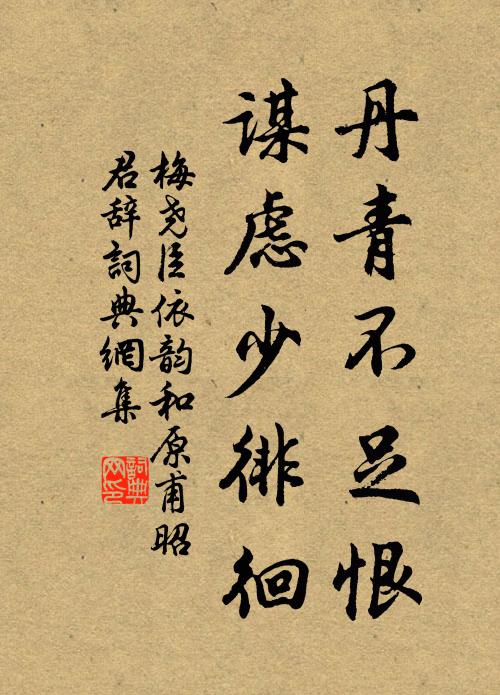 丹青不足恨
谋虑少徘徊
梅尧臣依韵和原甫昭
君辞詞典網集
詞典
网印